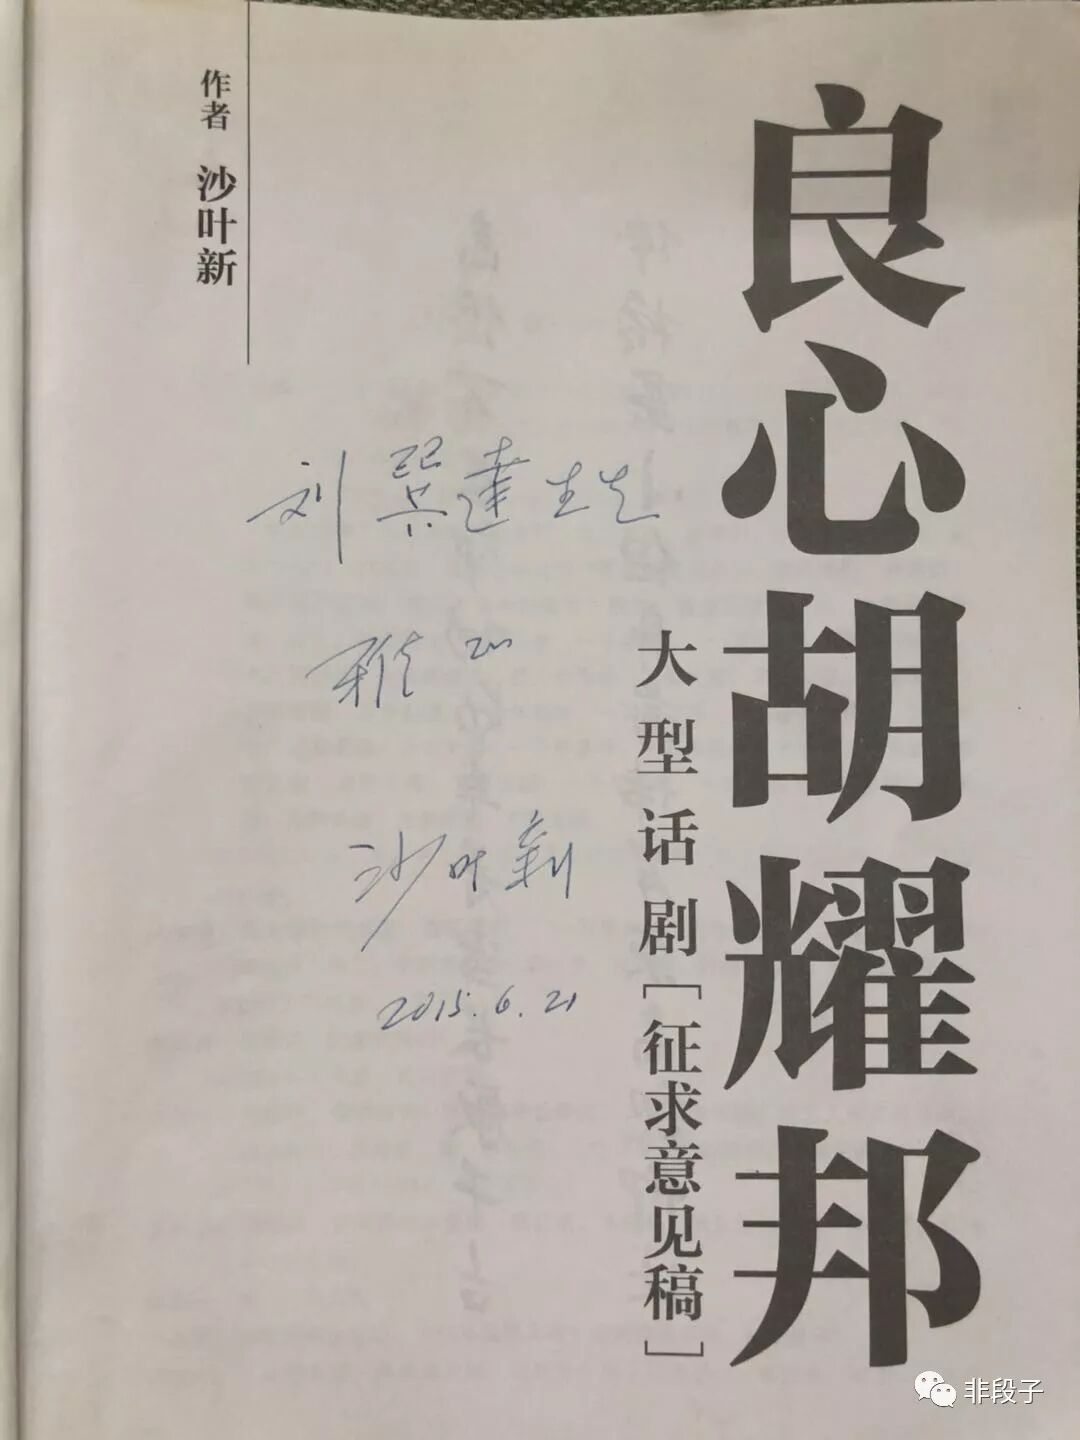 良心胡耀邦
大型话剧[征求意见稿]
作者 沙叶新
刘巽達先生
雅正
沙叶新
2015.6.21
非段子